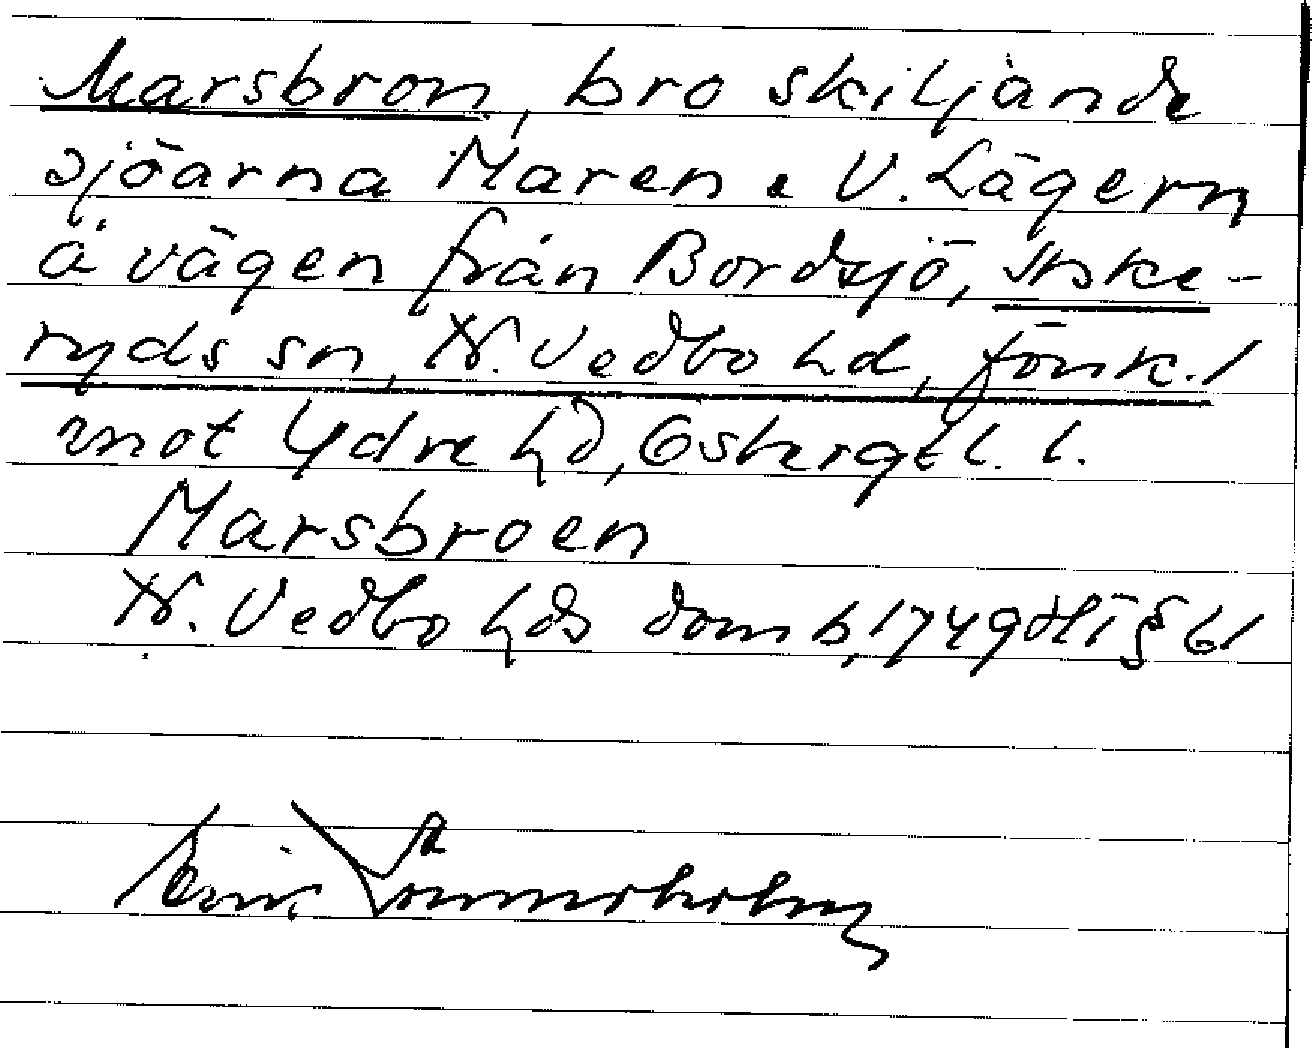 Marsbron, bro skiljande
sjöarna Maren o V. Lägern
å vägen från Bordsjö, Aske-
ryds sn, N. Vedbo hd, Jönk. l
mot Ydre hd, Östergtl. l.
Marsbroen
N. Vedbo hds domb, 1749 HT § 61